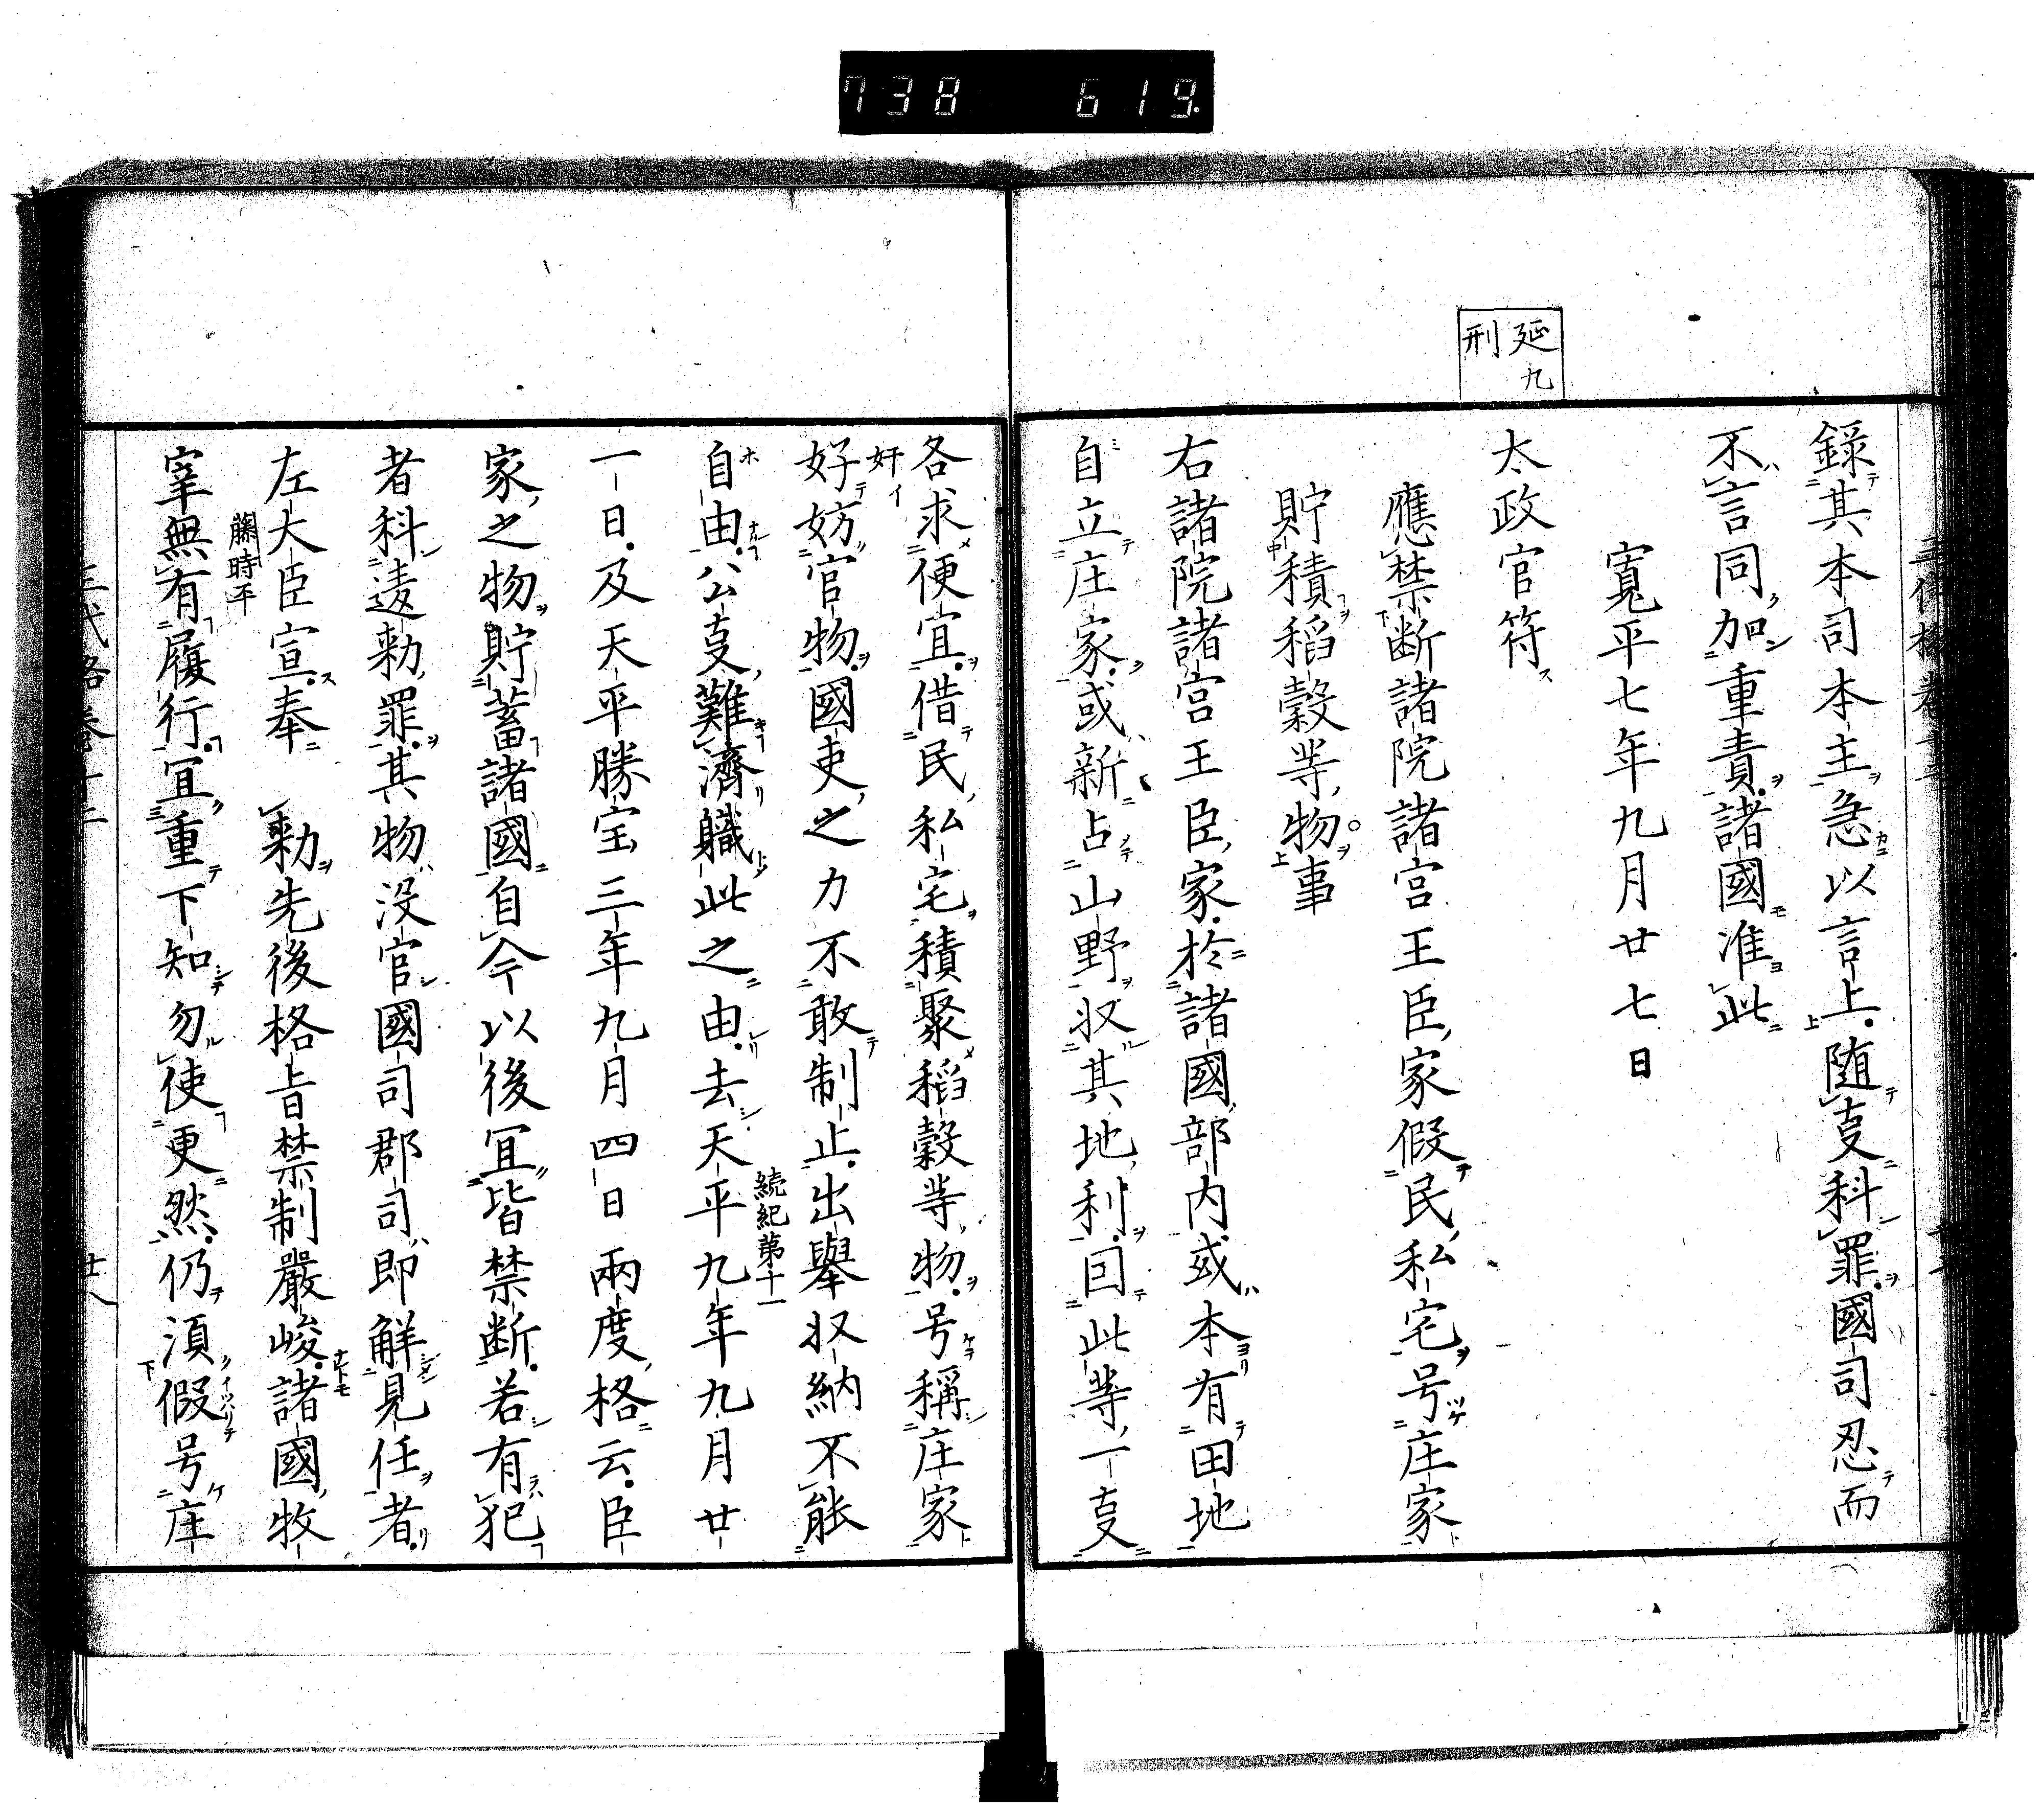 738 619.
延九
刑
録其本司本主急以言上随㕝科罪國司忍而
不言同加重責諸國准此
寛平七年九月廿七日
太政官符
應禁断諸院諸宮王臣家假民私宅号庄家
貯積稻穀等物事
右諸院諸宮王臣家於諸國部内或本有田地
自立庄家或新占山野収其地利回此等一㕝
各求便宜借民私宅積聚稻穀等物号稱庄家
奸イ
好妨官物國吏之力不敢制止出擧収納不能
自由公㕝難濟職此之由去天平九年九月廿
続紀第十一
一日及天平勝宝三年九月四日兩度格云臣
家之物貯蓄諸國自今以後冝皆禁断若有犯
者科違勅罪其物没官國司郡司即解見任者
左大臣宣奉　勅先後格旨禁制嚴峻諸國牧
藤時平
宰無有履行冝重下知勿使更然仍湏假号庄
三代格卷十二
廿八